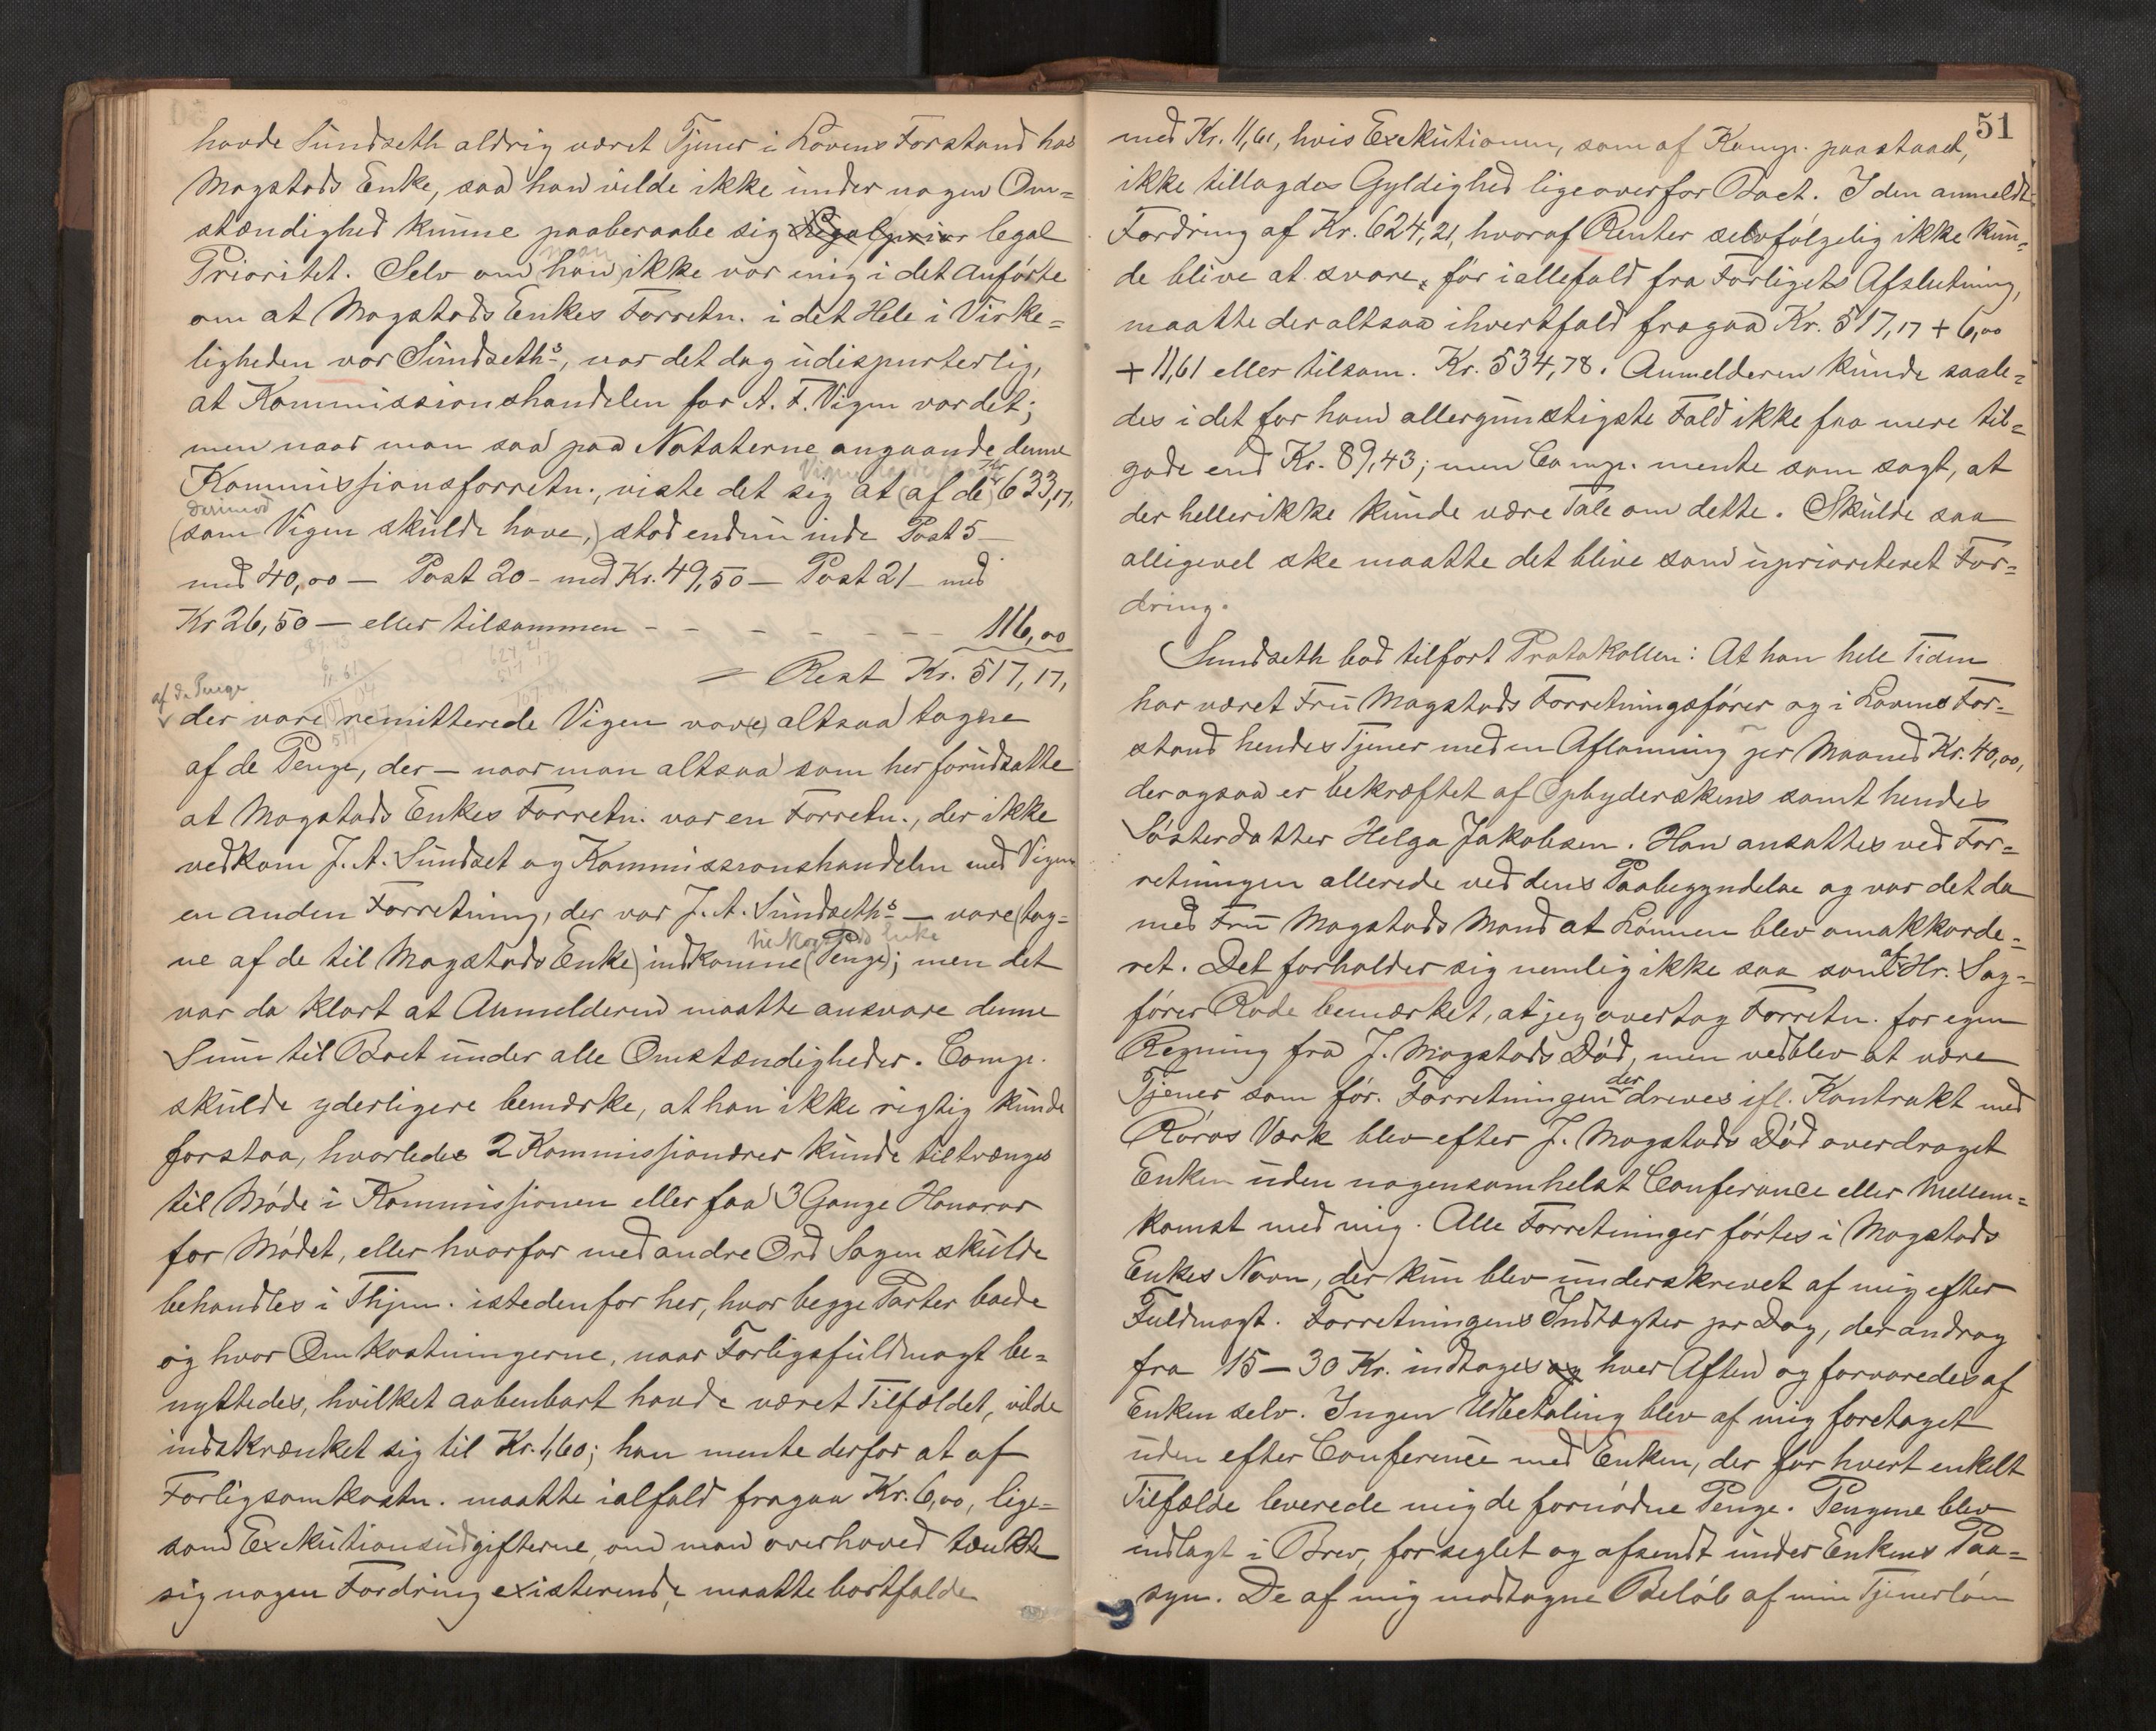 havde Sundseth aldrig været Tjener i Lovens Forstand hos
Magstads Enke, saa han vilde ikke under nogen Om=
stændighed kunne paaberaabe sig legal
Prioritet. Selv om han man ikke var enig i det Anførte
om at Magstads Enkes Forretn. i det Hele i Virke=
ligheden var Sundseths, var det dog udisputerlig,
at Kommissionshandelen for A. F. Vigen var det;
men naar man saa paa Notaterne angaaende denne
Kommissionsforretn., viste det sig at (af de) Kr 633,17,
derimod
(som Vigen skulde have,) stod endnu inde Post 5 —
med 40,00 — Post 20 — med Kr. 49,50 — Post 21 — med
Kr 26,50 — eller tilsammen - - - - - - - 116,00
= Rest Kr. 517,17,
af de Penge
der vare remitterede Vigen var(e) altsaa tagne
af de Penge, der — naar man altsaa som her forudsatte
at Magstads Enkes Forretn. var en Forretn., der ikke
vedkom J. A. Sundset og Kommissionshandelen med Vigen
en anden Forretning, der var J. A. Sundseths — vare (tag=
ne af de til Magstads Enke) indkomne (Penge); men det
var da klart at Anmelderen maatte ansvare denne
Sum til Boet under alle Omstændigheder. Comp.
skulde yderligere bemærke, at han ikke rigtig kunde
forstaa, hvorledes 2 Kommissionærer kunde tiltrænges
til Møde i Kommissionen eller faa 3 Gange Honorar
for Mødet, eller hvorfor med andre Ord Sagen skulde
behandles i Thjem. istedenfor her, hvor begge Parter boede
og hvor Omkostningerne, naar Forligsfuldmagt be=
nyttedes, hvilket aabenbart havde været Tilfældet, vilde
indskrænket sig til Kr. 1,60; han mente derfor at af
Forligsomkostn. maatte ialfald fragaa Kr. 6,00, lige=
som Exekutionsudgifterne, om man overhoved tænkte
sig nogen Fordring existerende, maatte bortfalde
51
med Kr. 11,61, hvis Exekutionen, som af Komp. paastaaet,
ikke tillagdes Gyldighed ligeoverfor Boet. I den anmeldte
Fordring af Kr. 624,21, hvoraf Renter selvfølgelig ikke kun=
de blive at svare, før i allefald fra Forligets Afslutning,
maatte der altsaa ihvertfald fragaa Kr. 517,17 + 6,00
+ 11,61 eller tilsam. Kr. 534,78. Anmelderen kunde saale=
des i det for ham allergunstigste Fald ikke faa mere til=
gode end Kr. 89,43; men Comp. mente som sagt, at
der heller ikke kunde være Tale om dette. Skulde saa
alligevel ske maatte det blive som uprioriteret For=
dring.
Sundseth bad tilført Protokollen: At han hele Tiden
har været Fru Magstads Forretningsfører og i Lovens For=
stand hendes Tjener med en Aflønning pr Maaned Kr. 40,00,
der ogsaa er bekræftet af Opbyderskens samt hendes
Søsterdatter Helga Jakobsen. Han ansattes ved For=
retningen allerede ved dens Paabegyndelse og var det da
med Fru Magstads Mand at Lønnen blev omakkorde=
ret. Det forholder sig nemlig ikke saa som af Hr. Sag=
fører Rode bemærket, at jeg overtog Forretn. for egen
Regning fra J. Magstads Død, men vedblev at være
Tjener som før. Forretningen der dreves ifl. Kontrakt med
Røros Værk blev efter J. Magstads Død overdraget
Enken uden nogensomhelst Conferance eller Mellem=
komst med mig. Alle Forretninger førtes i Magstads
Enkes Navn, der kun blev underskrevet af mig efter
Fuldmagt. Forretningens Indtægter pr Dag, der androg
fra 15 — 30 Kr. indtoges hver Aften og forvaredes af
Enken selv. Ingen Udbetaling blev af mig foretaget
uden efter Conference med Enken, der for hvert enkelt
Tilfælde leverede mig de fornødne Penge. Pengene blev
indlagt i Brev, forseglet og afsendt under Enkens Paa=
syn. De af mig modtagne Beløb af min Tjenerløn